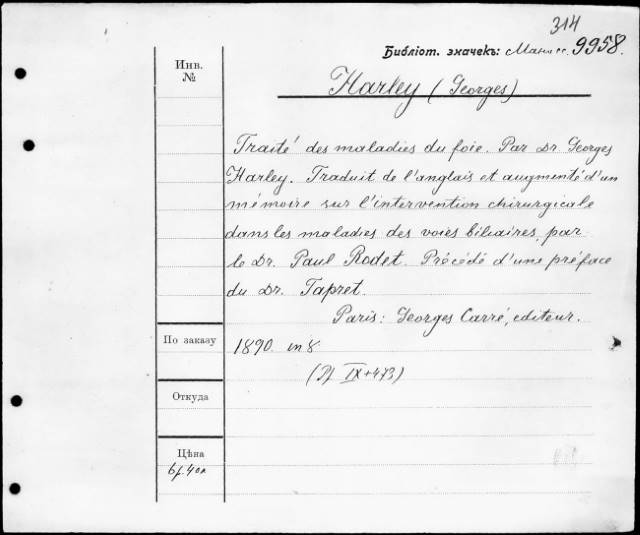 314
Библіот. значекъ: Манасс. 9958.
Инв.
№
Harley (Georges)
Traité des maladies du foie. Par Dr Georges
Harley. Traduit de l'anglais et augmenté d'un
mémoire sur l'intervention chirurgicale
dans les maladies des voies biliaires par
le Dr. Paul Rodet. Précédé d'une préface
du Dr. Tapret.
Paris: Georges Carré, editeur.
По заказу
1890. in 8
IX+473)
Откуда
Цѣна
6р. 40к